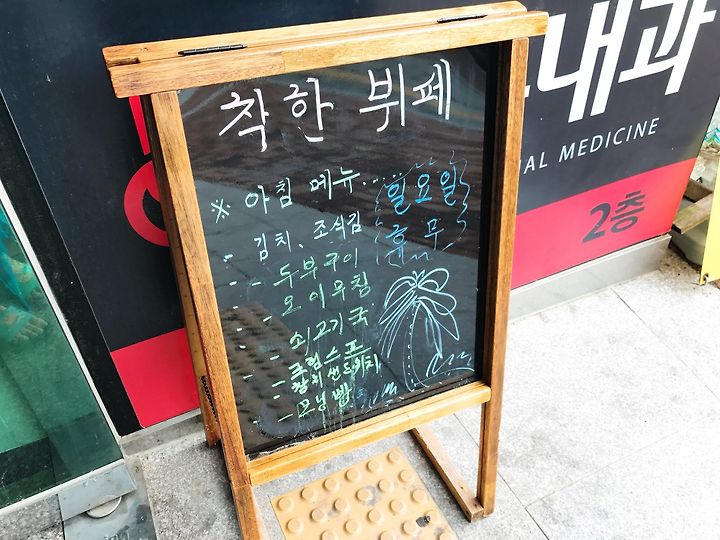 착한 뷔페
※ 아침 메뉴.....
일요일
휴무
- 김치、조식김
- - 두부구이
- 오이무침
- 쇠고기국
- 크림스프
- 참치샌드위치
- 모닝빵
내과
AL MEDICINE
2층